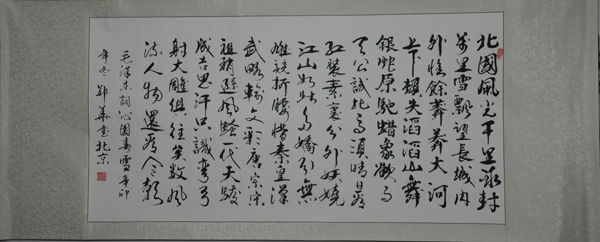 北國風光千里冰封
萬里雪飄望長城内
外惟餘莽莽大河
上下頓失滔滔山舞
銀蛇原馳蠟象欲与
天公試比高須晴日看
紅裝素裹分外妖嬈
江山如此多嬌引無
雄競折腰惜秦皇漢
武略輸文彩唐宗宋
祖稍遜風騷一代天驕
成吉思汗只識彎弓
射大雕俱往矣數風
流人物還看今朝
毛澤東詞沁園春雪辛卯
年冬鄭華書北京